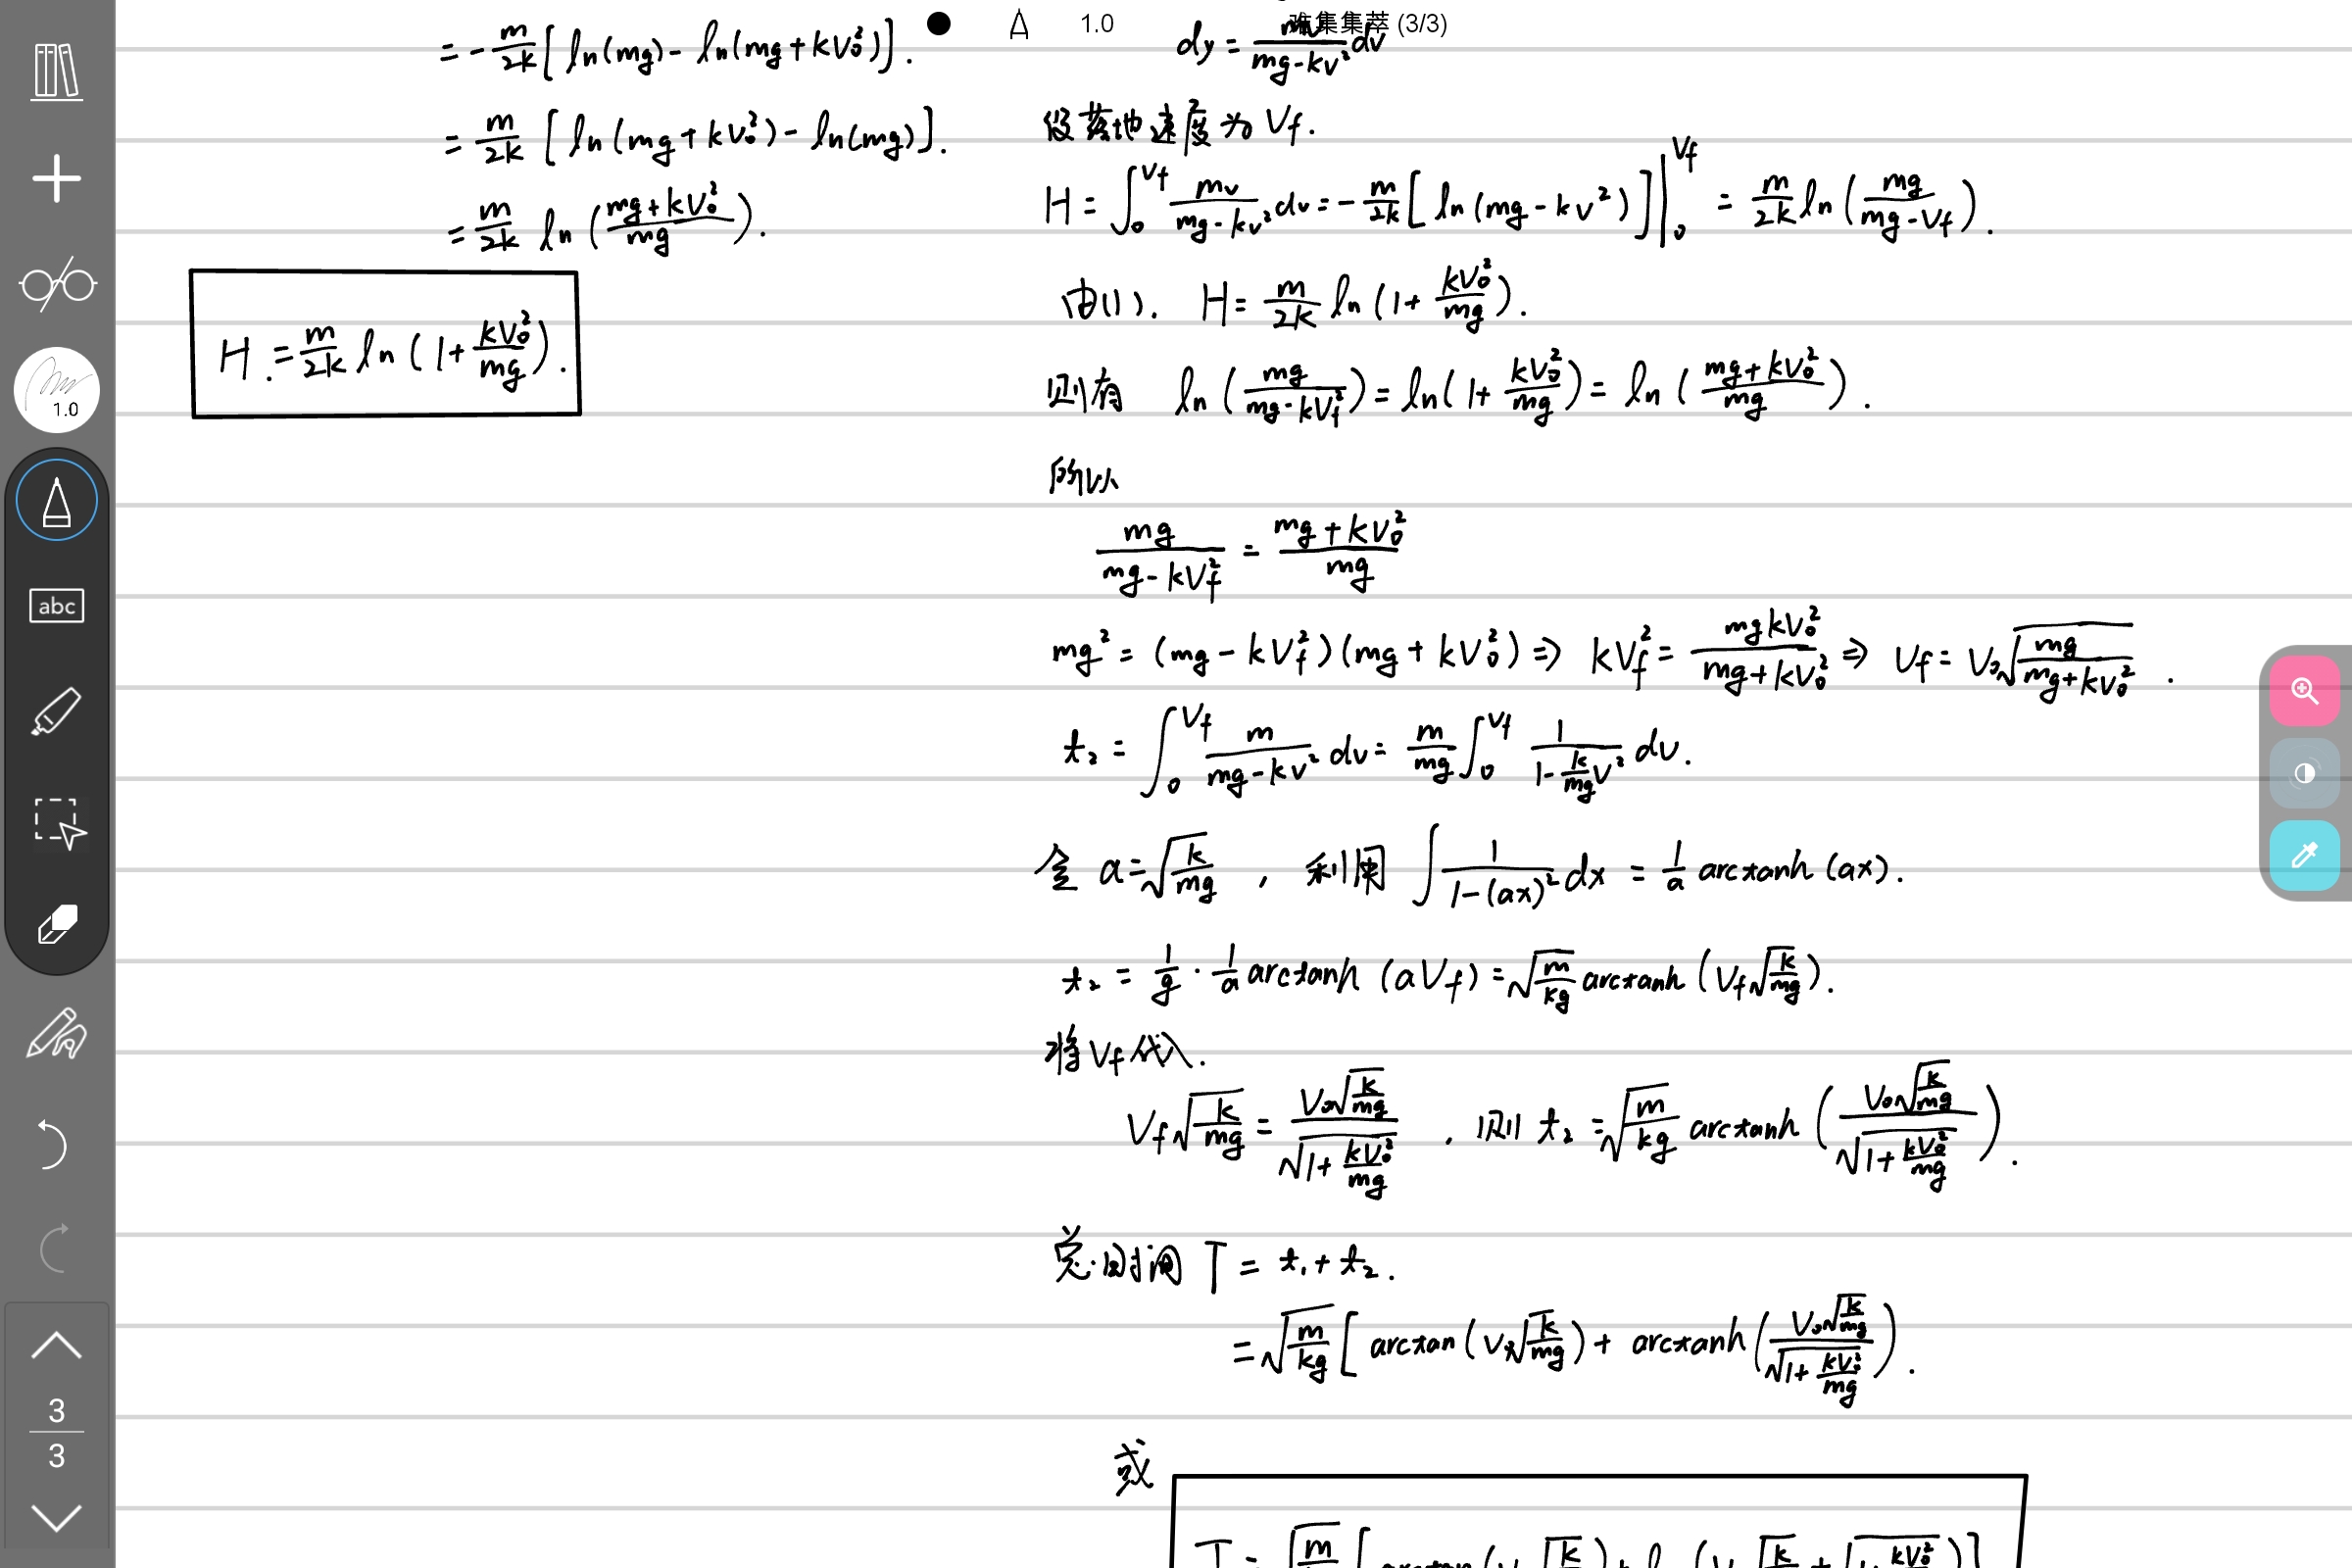 1.0
难集集萃 (3/3)
= -m/2k [ ln(mg) - ln(mg+kV₀²) ].
= m/2k [ ln(mg+kV₀²) - ln(mg) ].
= m/2k ln( (mg+kV₀²)/mg ).
H = m/2k ln( 1+ kV₀²/mg ).
dy = mv/(mg-kv²) dv
设落地速度为 Vf.
H = ∫₀^Vf mv/(mg-kv²) dv = -m/2k [ ln(mg-kv²) ] |₀^Vf = m/2k ln( mg/(mg-Vf) ).
由(1). H = m/2k ln( 1+ kV₀²/mg ).
则有 ln( mg/(mg-kVf²) ) = ln( 1+ kV₀²/mg ) = ln( (mg+kV₀²)/mg ).
所以
mg/(mg-kVf²) = (mg+kV₀²)/mg
mg² = (mg-kVf²)(mg+kV₀²) ⇒ kVf² = mgkV₀²/(mg+kV₀²) ⇒ Vf = V₀√(mg/(mg+kV₀²)).
t₂ = ∫₀^Vf m/(mg-kv²) dv = m/mg ∫₀^Vf 1/(1-(k/mg)v²) dv.
令 a=√(k/mg) , 利用 ∫ 1/(1-(ax)²) dx = 1/a arctanh (ax).
t₂ = 1/g · 1/a arctanh (aVf) = √(m/kg) arctanh ( Vf√(k/mg) ).
将Vf代入.
Vf√(k/mg) = V₀√(k/mg) / √(1+ kV₀²/mg) , 则 t₂ = √(m/kg) arctanh ( V₀√(k/mg) / √(1+ kV₀²/mg) ).
总时间 T = t₁ + t₂.
= √(m/kg) [ arctan( V₀√(k/mg) ) + arctanh ( V₀√(k/mg) / √(1+ kV₀²/mg) ).
或
1.0
abc
3
3